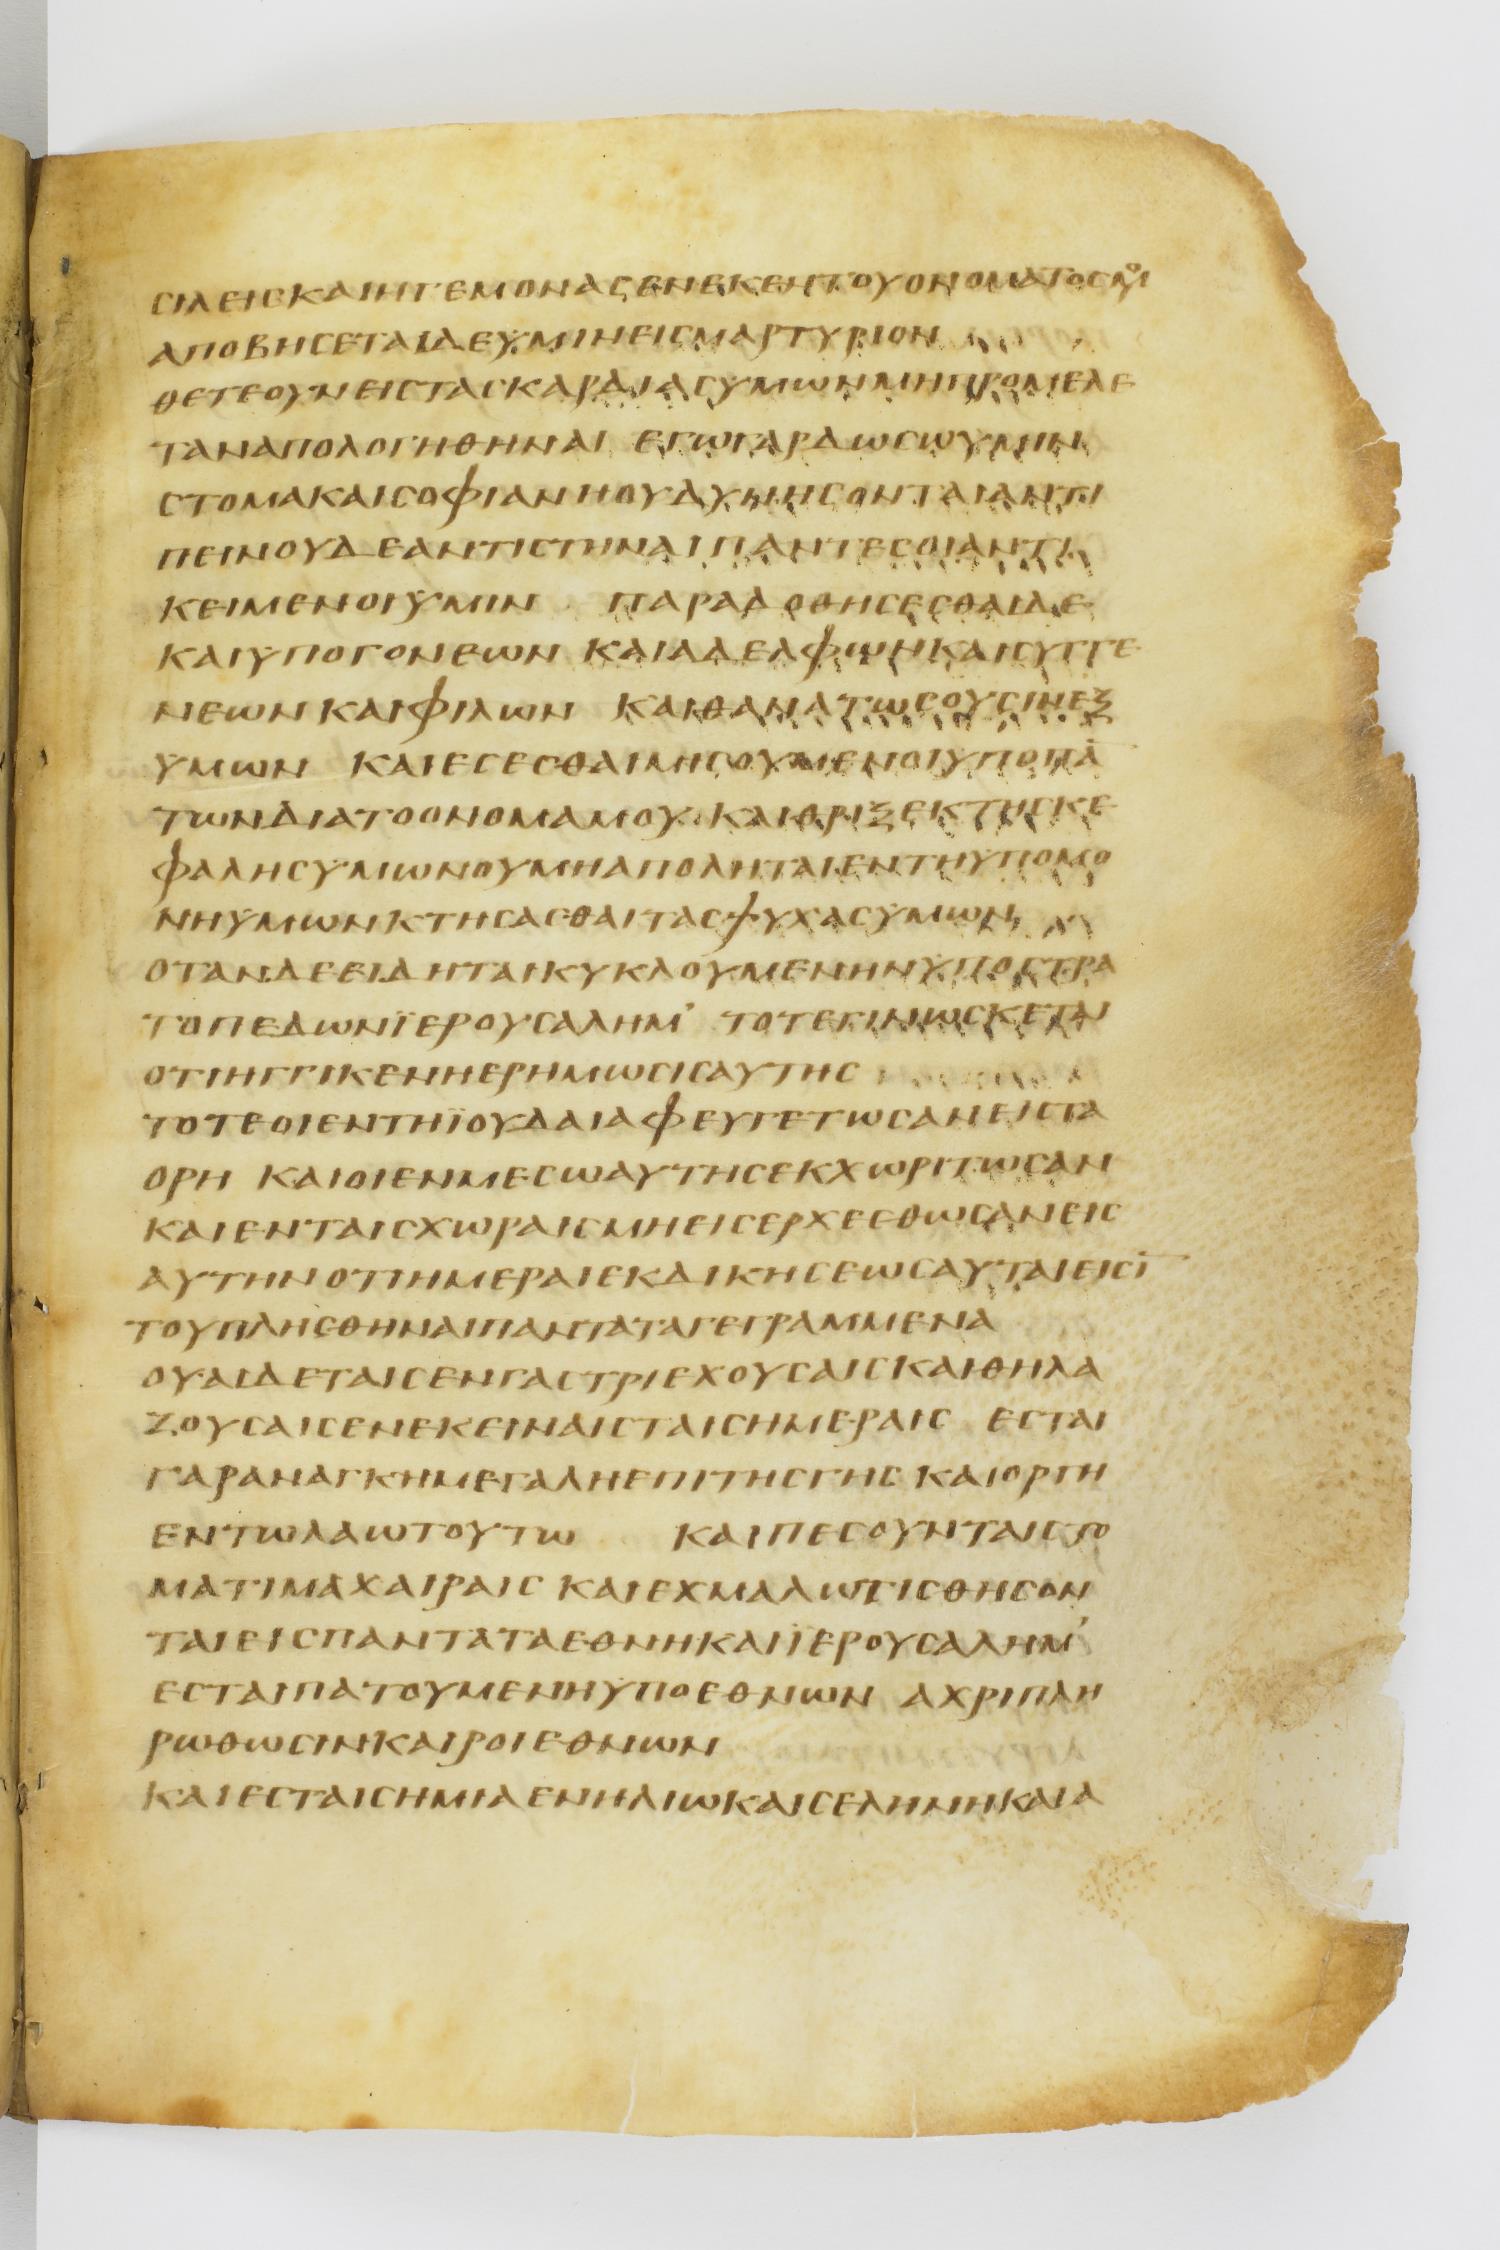 ϹΙΛΕΙϹΚΑΙΗΓΕΜΟΝΑϹΕΝΕΚΕΝΤΟΥΟΝΟΜΑΤΟϹΜΟΥ
ΑΠΟΒΗϹΕΤΑΙΔΕΫΜΙΝΕΙϹΜΑΡΤΥΡΙΟΝ
ΘΕΤΕΟΥΝΕΙϹΤΑϹΚΑΡΔΙΑϹΥΜΩΝΜΗΠΡΟΜΕΛΕ
ΤΑΝΑΠΟΛΟΓΗΘΗΝΑΙ ΕΓΩΓΑΡΔΩϹΩΥΜΙΝ
ϹΤΟΜΑΚΑΙϹΟΦΙΑΝΗΟΥΔΥΝΗϹΟΝΤΑΙΑΝΤΙ
ΠΕΙΝΟΥΔΕΑΝΤΙϹΤΗΝΑΙΠΑΝΤΕϹΟΙΑΝΤΙ
ΚΕΙΜΕΝΟΙΫΜΙΝ ΠΑΡΑΔΟΘΗϹΕϹΘΑΙΔΕ
ΚΑΙΫΠΟΓΟΝΕΩΝ ΚΑΙΑΔΕΛΦΩΝΚΑΙϹΥΓΓΕ
ΝΕΩΝΚΑΙΦΙΛΩΝ ΚΑΙΘΑΝΑΤΩϹΟΥϹΙΝΕΞ
ΥΜΩΝ ΚΑΙΕϹΕϹΘΑΙΜΙϹΟΥΜΕΝΟΙΫΠΟΠΑ̅
ΤΩΝΔΙΑΤΟΟΝΟΜΑΜΟΥ ΚΑΙΘΡΙΞΕΚΤΗϹΚΕ
ΦΑΛΗϹΥΜΩΝΟΥΜΗΑΠΟΛΗΤΑΙΕΝΤΗΥΠΟΜΟ
ΝΗΥΜΩΝΚΤΗϹΑϹΘΑΙΤΑϹΨΥΧΑϹΥΜΩΝ
ΟΤΑΝΔΕΕΙΔΗΤΑΙΚΥΚΛΟΥΜΕΝΗΝΫΠΟϹΤΡΑ
ΤΟΠΕΔΩΝΪΕΡΟΥϹΑΛΗΜ’ ΤΟΤΕΓΙΝΩϹΚΕΤΑΙ
ΟΤΙΗΓΓΙΚΕΝΗΕΡΗΜΩϹΙϹΑΥΤΗϹ
ΤΟΤΕΟΙΕΝΤΗΪΟΥΔΑΙΑΦΕΥΓΕΤΩϹΑΝΕΙϹΤΑ
ΟΡΗ ΚΑΙΟΙΕΝΜΕϹΩΑΥΤΗϹΕΚΧΩΡΙΤΩϹΑΝ
ΚΑΙΕΝΤΑΙϹΧΩΡΑΙϹΜΗΕΙϹΕΡΧΕϹΘΩϹΑΝΕΙϹ
ΑΥΤΗΝΟΤΙΗΜΕΡΑΙΕΚΔΙΚΗϹΕΩϹΑΥΤΑΙΕΙϹΙ̅
ΤΟΥΠΛΗϹΘΗΝΑΙΠΑΝΤΑΤΑΓΕΓΡΑΜΜΕΝΑ
ΟΥΑΙΔΕΤΑΙϹΕΝΓΑϹΤΡΙΕΧΟΥϹΑΙϹΚΑΙΘΗΛΑ
ΖΟΥϹΑΙϹΕΝΕΚΕΙΝΑΙϹΤΑΙϹΗΜΕΡΑΙϹ ΕϹΤΑΙ
ΓΑΡΑΝΑΓΚΗΜΕΓΑΛΗΕΠΙΤΗϹΓΗϹ ΚΑΙΟΡΓΗ
ΕΝΤΩΛΑΩΤΟΥΤΩ ΚΑΙΠΕϹΟΥΝΤΑΙϹΤΟ
ΜΑΤΙΜΑΧΑΙΡΑΙϹ ΚΑΙΕΧΜΑΛΩΤΙϹΘΗϹΟΝ
ΤΑΙΕΙϹΠΑΝΤΑΤΑΕΘΝΗΚΑΙΪΕΡΟΥϹΑΛΗΜ’
ΕϹΤΑΙΠΑΤΟΥΜΕΝΗΫΠΟΕΘΝΩΝ ΑΧΡΙΠΛΗ
ΡΩΘΩϹΙΝΚΑΙΡΟΙΕΘΝΩΝ
ΚΑΙΕϹΤΑΙϹΗΜΙΑΕΝΗΛΙΩΚΑΙϹΕΛΗΝΗΚΑΙΑ